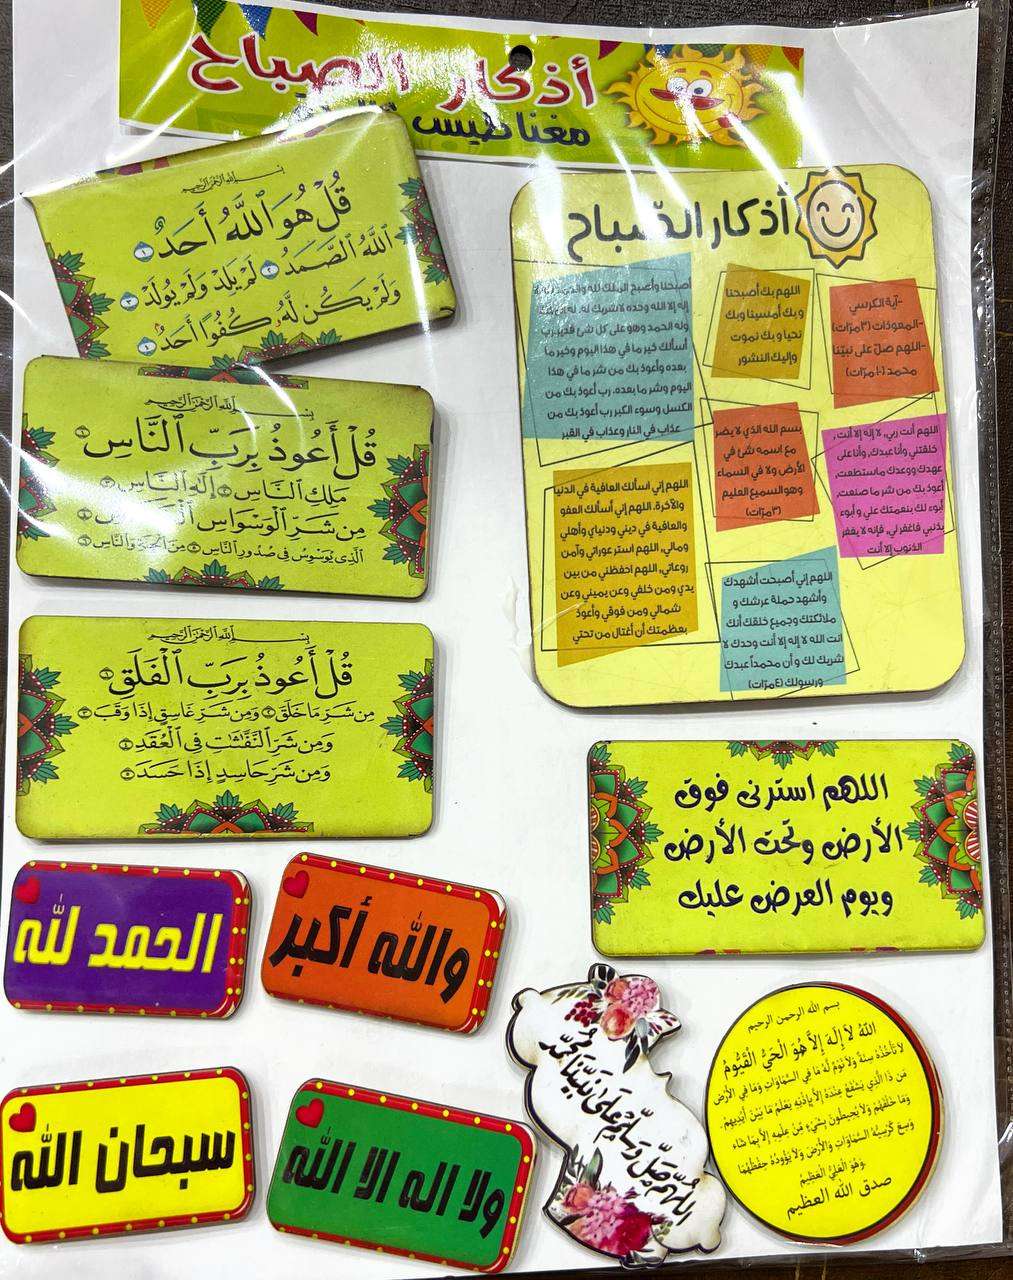 أذكار الصباح
مغناطيس
بسم الله الرحمن الرحيم
قُلْ هُوَ ٱللَّهُ أَحَدٌ ١
ٱللَّهُ ٱلصَّمَدُ ٢ لَمْ يَلِدْ وَلَمْ يُولَدْ ٣
وَلَمْ يَكُن لَّهُۥ كُفُوًا أَحَدٌۢ ٤
بسم الله الرحمن الرحيم
قُلْ أَعُوذُ بِرَبِّ ٱلنَّاسِ ١
مَلِكِ ٱلنَّاسِ ٢ إِلَٰهِ ٱلنَّاسِ ٣
مِن شَرِّ ٱلْوَسْوَاسِ
ٱلَّذِى يُوَسْوِسُ فِى صُدُورِ ٱلنَّاسِ ٥ مِنَ ٱلْجِنَّةِ وَٱلنَّاسِ ٦
بسم الله الرحمن الرحيم
قُلْ أَعُوذُ بِرَبِّ ٱلْفَلَقِ ١
مِن شَرِّ مَا خَلَقَ ٢ وَمِن شَرِّ غَاسِقٍ إِذَا وَقَبَ ٣
وَمِن شَرِّ ٱلنَّفَّٰثَٰتِ فِى ٱلْعُقَدِ ٤
وَمِن شَرِّ حَاسِدٍ إِذَا حَسَدَ ٥
أذكار الصّباح
-آية الكرسي
-المعوذات (٣مرّات)
-اللهم صلّ على نبيّنا
محمد (١٠مرّات)
اللهم بك أصبحنا
وبك أمسينا وبك
نحيا وبك نموت
وإليك النشور
أصبحنا وأصبح الملك لله والحمد لله
إله إلا الله وحده لا شريك له، له الملك
وله الحمد وهو على كل شئ قدير، رب
أسألك خير ما في هذا اليوم وخير ما
بعده وأعوذ بك من شر ما في هذا
اليوم وشر ما بعده، رب أعوذ بك من
الكسل وسوء الكبر رب أعوذ بك من
عذاب في النار وعذاب في القبر
اللهم أنت ربي، لا إله إلا أنت،
خلقتني وأنا عبدك، وأنا على
عهدك ووعدك ما استطعت،
أعوذ بك من شر ما صنعت،
أبوء لك بنعمتك علي وأبوء
بذنبي فاغفر لي، فإنه لا يغفر
الذنوب إلا أنت
بسم الله الذي لا يضر
مع اسمه شئ في
الأرض ولا في السماء
وهو السميع العليم
(٣مرّات)
اللهم إني أسألك العافية في الدنيا
والآخرة، اللهم إني أسألك العفو
والعافية في ديني ودنياي وأهلي
ومالي، اللهم استر عوراتي وآمن
روعاتي، اللهم احفظني من بين
يدي ومن خلفي وعن يميني وعن
شمالي ومن فوقي وأعوذ
بعظمتك أن أغتال من تحتي
اللهم إني أصبحت أشهدك
وأشهد حملة عرشك و
ملائكتك وجميع خلقك أنك
انت الله لا إله إلا أنت وحدك لا
شريك لك و أن محمداً عبدك
ورسولك (٤مرّات)
اللهم استرني فوق
الأرض وتحت الأرض
ويوم العرض عليك
الحمد لله
والله أكبر
سبحان الله
ولا اله الا الله
اللهم صلّ وسلم على نبينا محمد
بسم الله الرحمن الرحيم
اللهُ لاَ إِلَهَ إِلاَّ هُوَ الْحَيُّ الْقَيُّومُ
لاَ تَأْخُذُهُ سِنَةٌ وَلاَ نَوْمٌ لَهُ مَا فِي السَّمَاوَاتِ وَمَا فِي الأَرْضِ
مَن ذَا الَّذِي يَشْفَعُ عِنْدَهُ إِلاَّ بِإِذْنِهِ يَعْلَمُ مَا بَيْنَ أَيْدِيهِمْ
وَمَا خَلْفَهُمْ وَلاَ يُحِيطُونَ بِشَيْءٍ مِّنْ عِلْمِهِ إِلاَّ بِمَا شَاء
وَسِعَ كُرْسِيُّهُ السَّمَاوَاتِ وَالأَرْضَ وَلاَ يَؤُودُهُ حِفْظُهُمَا
وَهُوَ الْعَلِيُّ الْعَظِيمُ
صدق الله العظيم